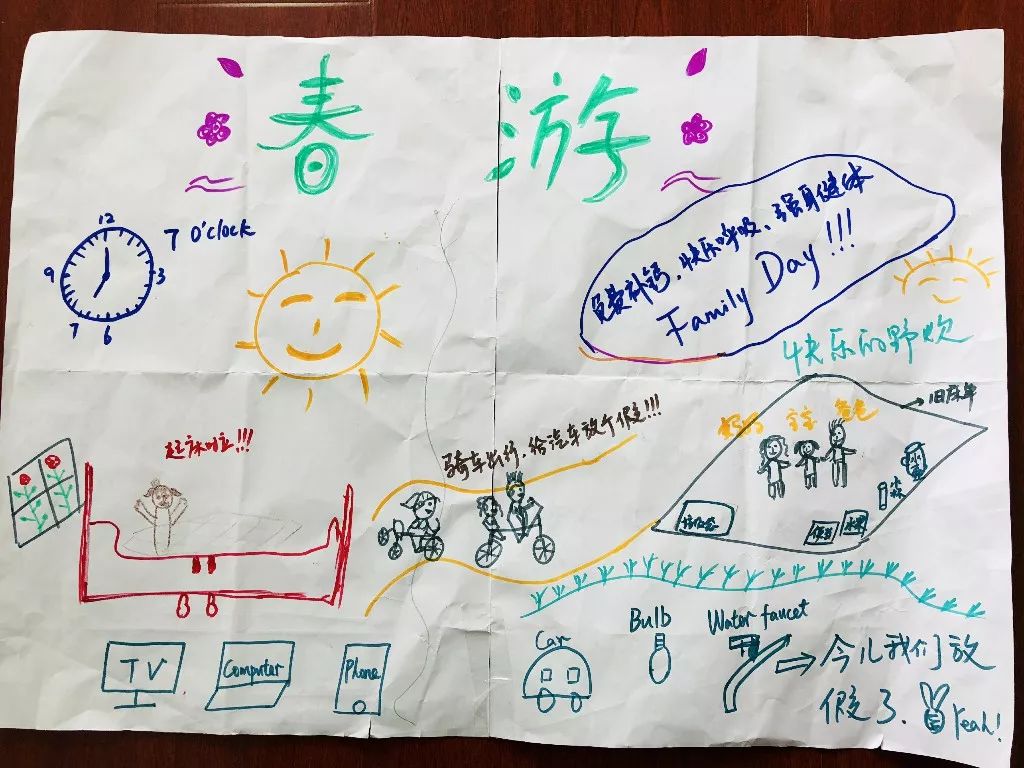 春 游
12
9
3
7
6
7 O'clock
免费补钙、快乐呼吸、强身健体
Family Day!!!
快乐的野炊
旧床单
妈妈 宝宝 爸爸
起床啦!!!
骑车出行、给汽车放个假!!!
水果
TV
Computer
Phone
Car
Bulb
Water faucet
今儿我们放
假了、Yeah!